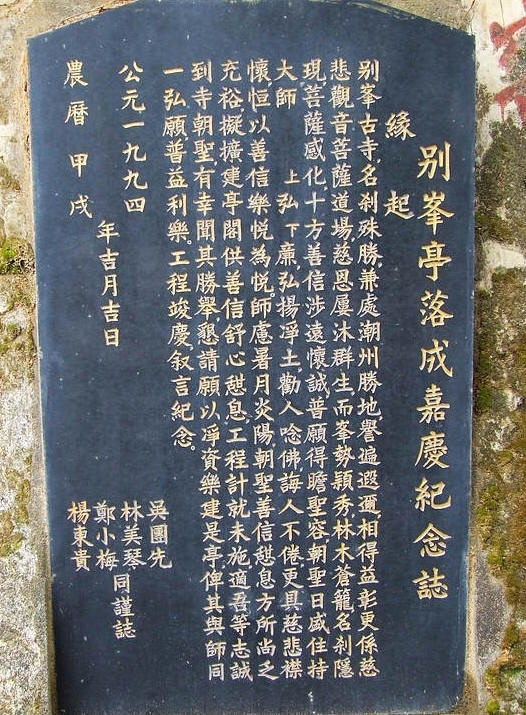 别峯亭落成嘉慶紀念誌
緣起
别峯古寺,名刹殊勝,兼處潮州勝地,譽遍遐邇,相得益彰,更係慈
悲觀音菩薩道場,慈恩屢沐群生,而峯勢穎秀,林木蒼籠,名刹隱
現,菩薩感化十方善信,涉遠懷誠,普願得瞻聖容,朝聖日盛,住持
大師 上弘下廉,弘揚淨土,勸人唸佛,誨人不倦,更具慈悲襟
懷,恒以善信樂悦為悦,師慮暑月炎陽,朝聖善信憇息方所尚乏
充裕,擬擴建亭閣,供善信舒心憇息,工程計就未施,適吾等志誠
到寺朝聖,有幸聞其勝舉,懇請願以淨資樂建是亭,俾其與師同
一弘願,普益利樂。工程竣慶,叙言紀念。
吳團先
林美琴
鄭小梅
楊東貴
同謹誌
公元一九九四
農曆甲戌
年吉月吉日